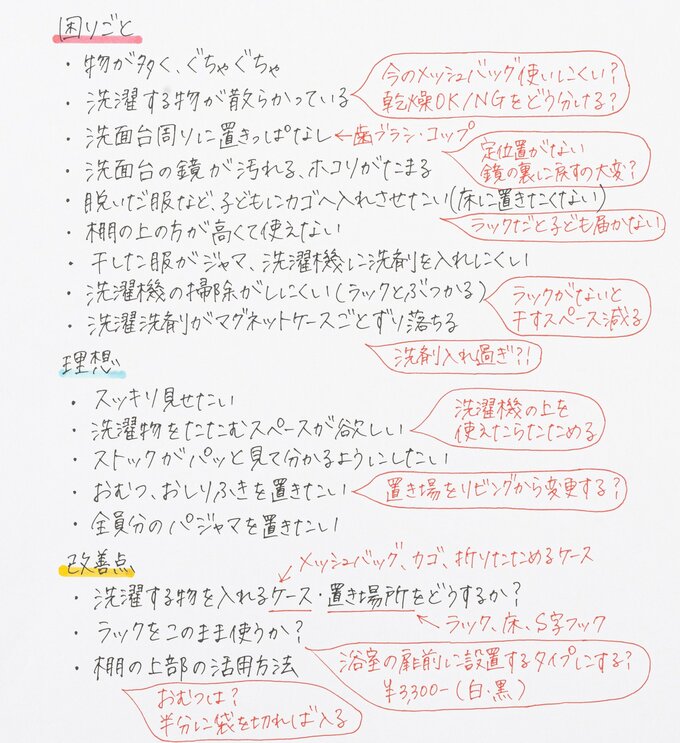 困りごと
・物が多く、ぐちゃぐちゃ
・洗濯する物が散らかっている
今のメッシュバッグ使いにくい？
乾燥OK/NGをどう分ける？
・洗面台周りに置きっぱなし ←歯ブラシ・コップ
・洗面台の鏡が汚れる、ホコリがたまる
定位置がない
鏡の裏に戻すの大変？
・脱いだ服など、子どもにカゴへ入れさせたい(床に置きたくない)
・棚の上の方が高くて使えない
ラックだと子ども届かない
・干した服がジャマ、洗濯機に洗剤を入れにくい
・洗濯機の掃除がしにくい(ラックとぶつかる)
ラックがないと
干すスペース減る
・洗濯洗剤がマグネットケースごとずり落ちる
洗剤入れ過ぎ?!
理想
・スッキリ見せたい
・洗濯物をたたむスペースが欲しい
洗濯機の上を
使えたらたためる
・ストックがパッと見て分かるようにしたい
・おむつ、おしりふきを置きたい
置き場をリビングから変更する？
・全員分のパジャマを置きたい
改善点
メッシュバッグ、カゴ、折りたためるケース
・洗濯する物を入れるケース・置き場所をどうするか？
ラック、床、S字フック
・ラックをこのまま使うか？
浴室の扉前に設置するタイプにする？
¥3,300-(白・黒)
・棚の上部の活用方法
おむつは？
半分に袋を切れば入る